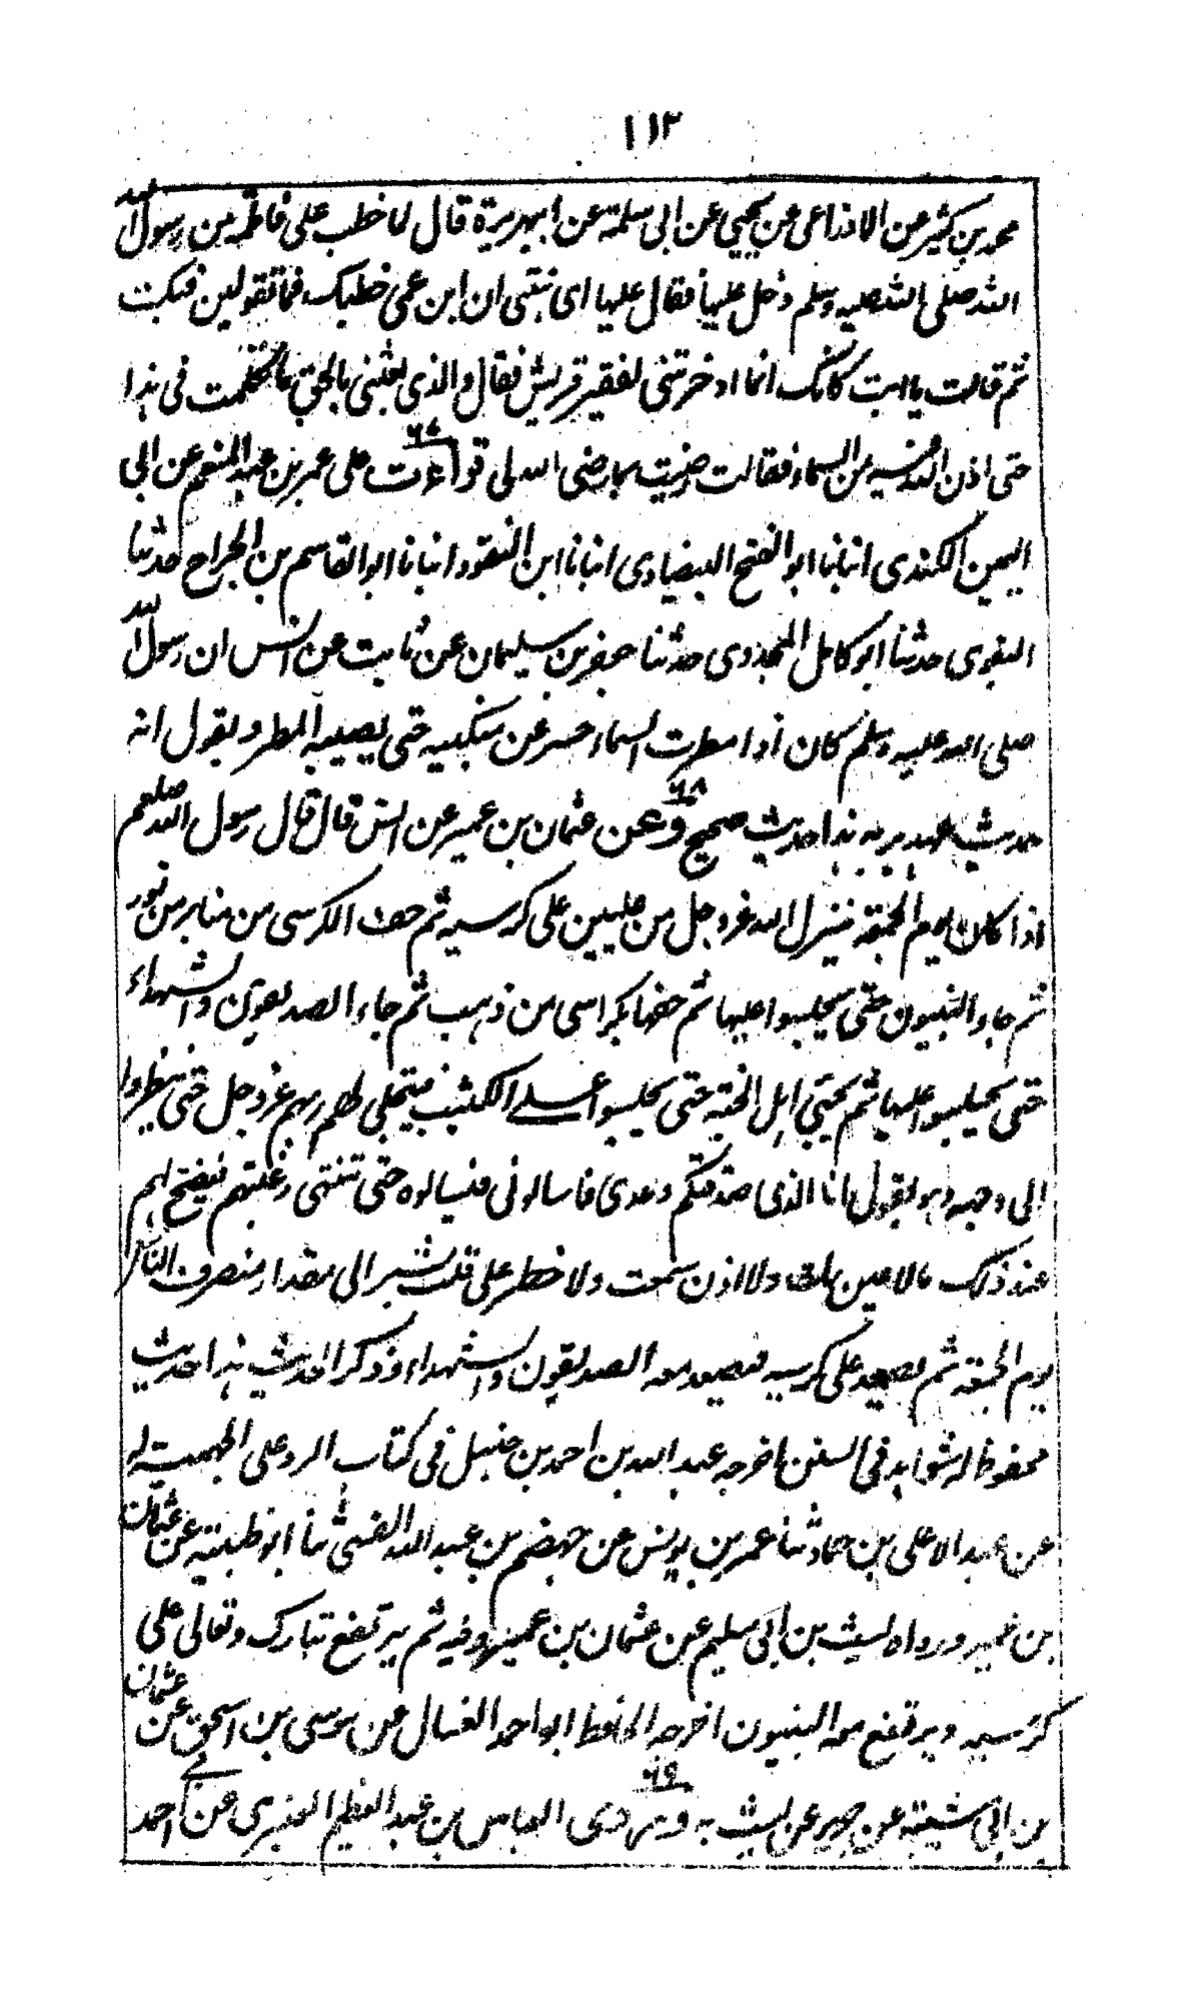 ١١٣
محمد بن كثير عن الاوزاعى عن يحيى عن ابى سلمة عن ابيهريرة قال لما خطب على فاطمه من رسول الله
الله صلى الله عليه وسلم دخل عليها فقال عليها اى بنتى ان ابن عمى خطبك فما تقولين فبكت
ثم قالت يا ابت كانك انما ادخرتنى لفقير قريش فقال والذى بعثنى بالحق ما تكلمت فى هذا
حتى اذن الله فيه من السماء فقالت رضيت بما رضى الله لى ٦٧ قرأت على عمر بن عبد المنعم عن ابى
اليمن الكندى انبانا ابو الفتح البيضاوى انبانا ابن النقور انبانا ابو القاسم بن الجراح حدثنا
البغوى حدثنا ابو كامل الجحدرى حدثنا جعفر بن سليمان عن ثابت عن انس ان رسول الله
صلى الله عليه وسلم كان اذا مطرت السماء حسر عن منكبيه حتى يصيبه المطر ويقول انه
حديث عهد بربه هذا حديث صحيح ٦٨ وعن عثمان بن عمير عن انس قال قال رسول الله صلعم
اذا كان يوم الجمعة ينزل الله عز وجل من عليين على كرسيه ثم حف الكرسى من منابر من نور
ثم جاء النبيون حتى يجلسوا عليها ثم حفها بكراسى من ذهب ثم جاء الصديقون والشهداء
حتى يجلسوا عليها ثم يجئ اهل الجنة حتى يجلسوا على الكثيب فيتجلى لهم ربهم عز وجل حتى ينظروا
الى وجهه وهو يقول انا الذى صدقتكم وعدى فاسالونى فيسالوه حتى تنتهى رغبتهم فيفتح لهم
عند ذلك مالا عين رات ولا اذن سمعت ولا خطر على قلب بشر الى مقدار منصرف الناس
يوم الجمعة ثم يصعد على كرسيه فيصعد معه الصديقون والشهداء وذكر الحديث هذا حديث
محفوظ له شواهد فى السنن اخرجه عبد الله بن احمد بن حنبل فى كتاب الرد على الجهمية له
عن عبد الاعلى بن حماد ثنا عمر بن يونس عن جهضم بن عبد الله القيسى ثنا ابو طيبة عن عثمان
بن عمير ورواه ليث بن ابى سليم عن عثمان بن عمير وفيه ثم يرتفع تبارك وتعالى على
كرسيه ويرتفع معه النبيون اخرجه الحافظ ابو احمد العسال عن موسى بن اسحق عن عثمان
بن ابى شيبة عن جرير عن ليث به ٦٩ وروى العباس بن عبد العظيم العنبرى عن احمد